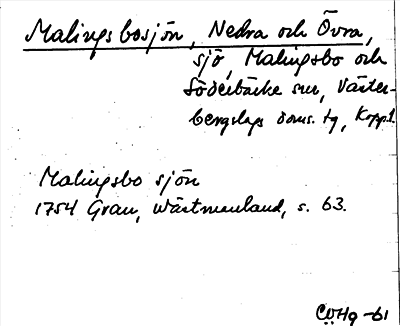 Malingsbosjön, Nedra och Övra,
sjö, Malingsbo och
Söderbärke snr, Väster-
bergslags doms. tg, Kopp.l.
Malingsbo sjön
1754 Grau, Wästmanland, s. 63.
CWHg -61